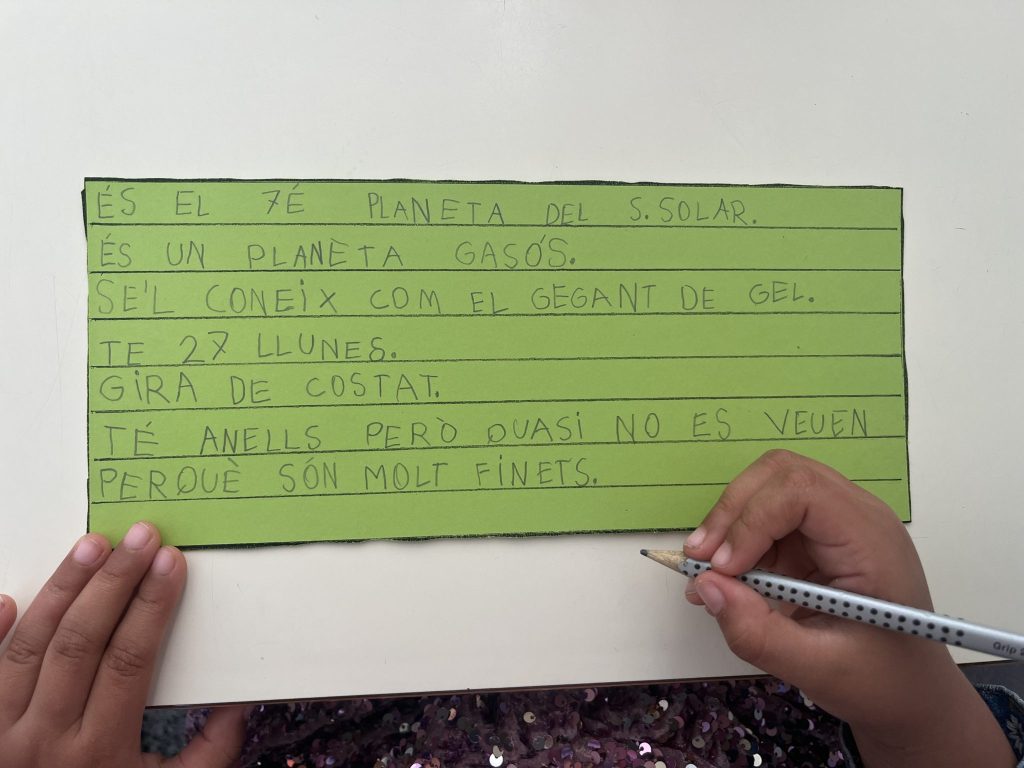 ÉS EL 7É PLANETA DEL S.SOLAR.
ÉS UN PLANETA GASÓS.
SE'L CONEiX COM EL GEGANT DE GEL.
TE 27 LLUNES.
GiRA DE COSTAT.
TÉ ANELLS PERÒ QUASi NO ES VEUEN
PERQUÈ SÓN MOLT FiNETS.
Grip